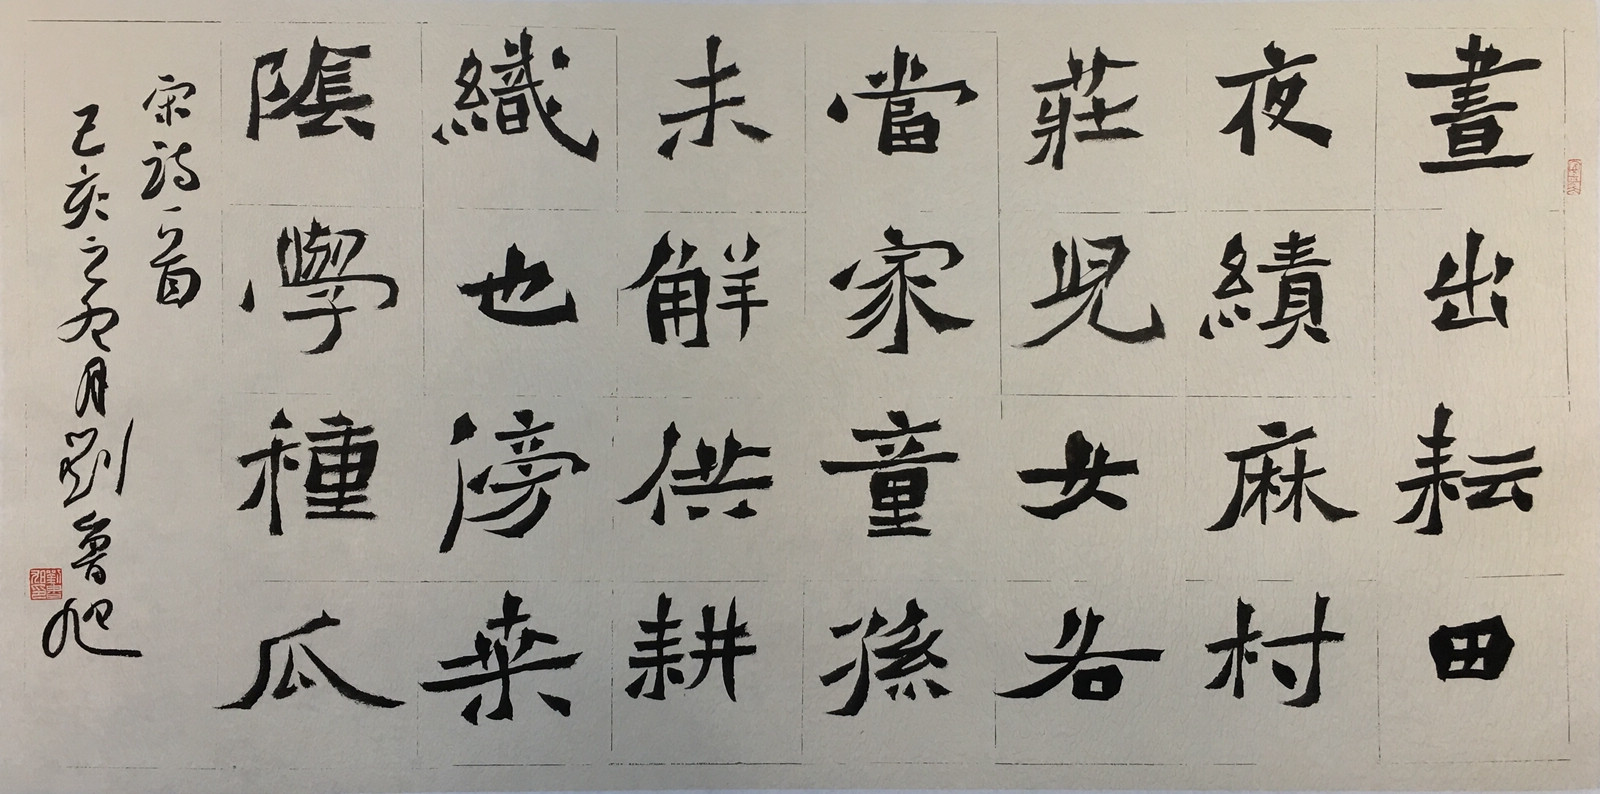 晝出耘田
夜績麻村
莊兒女各
當家童孫
未解供耕
織也傍桒
陰學種瓜
宋詩一首
己亥之九月劉魯旭